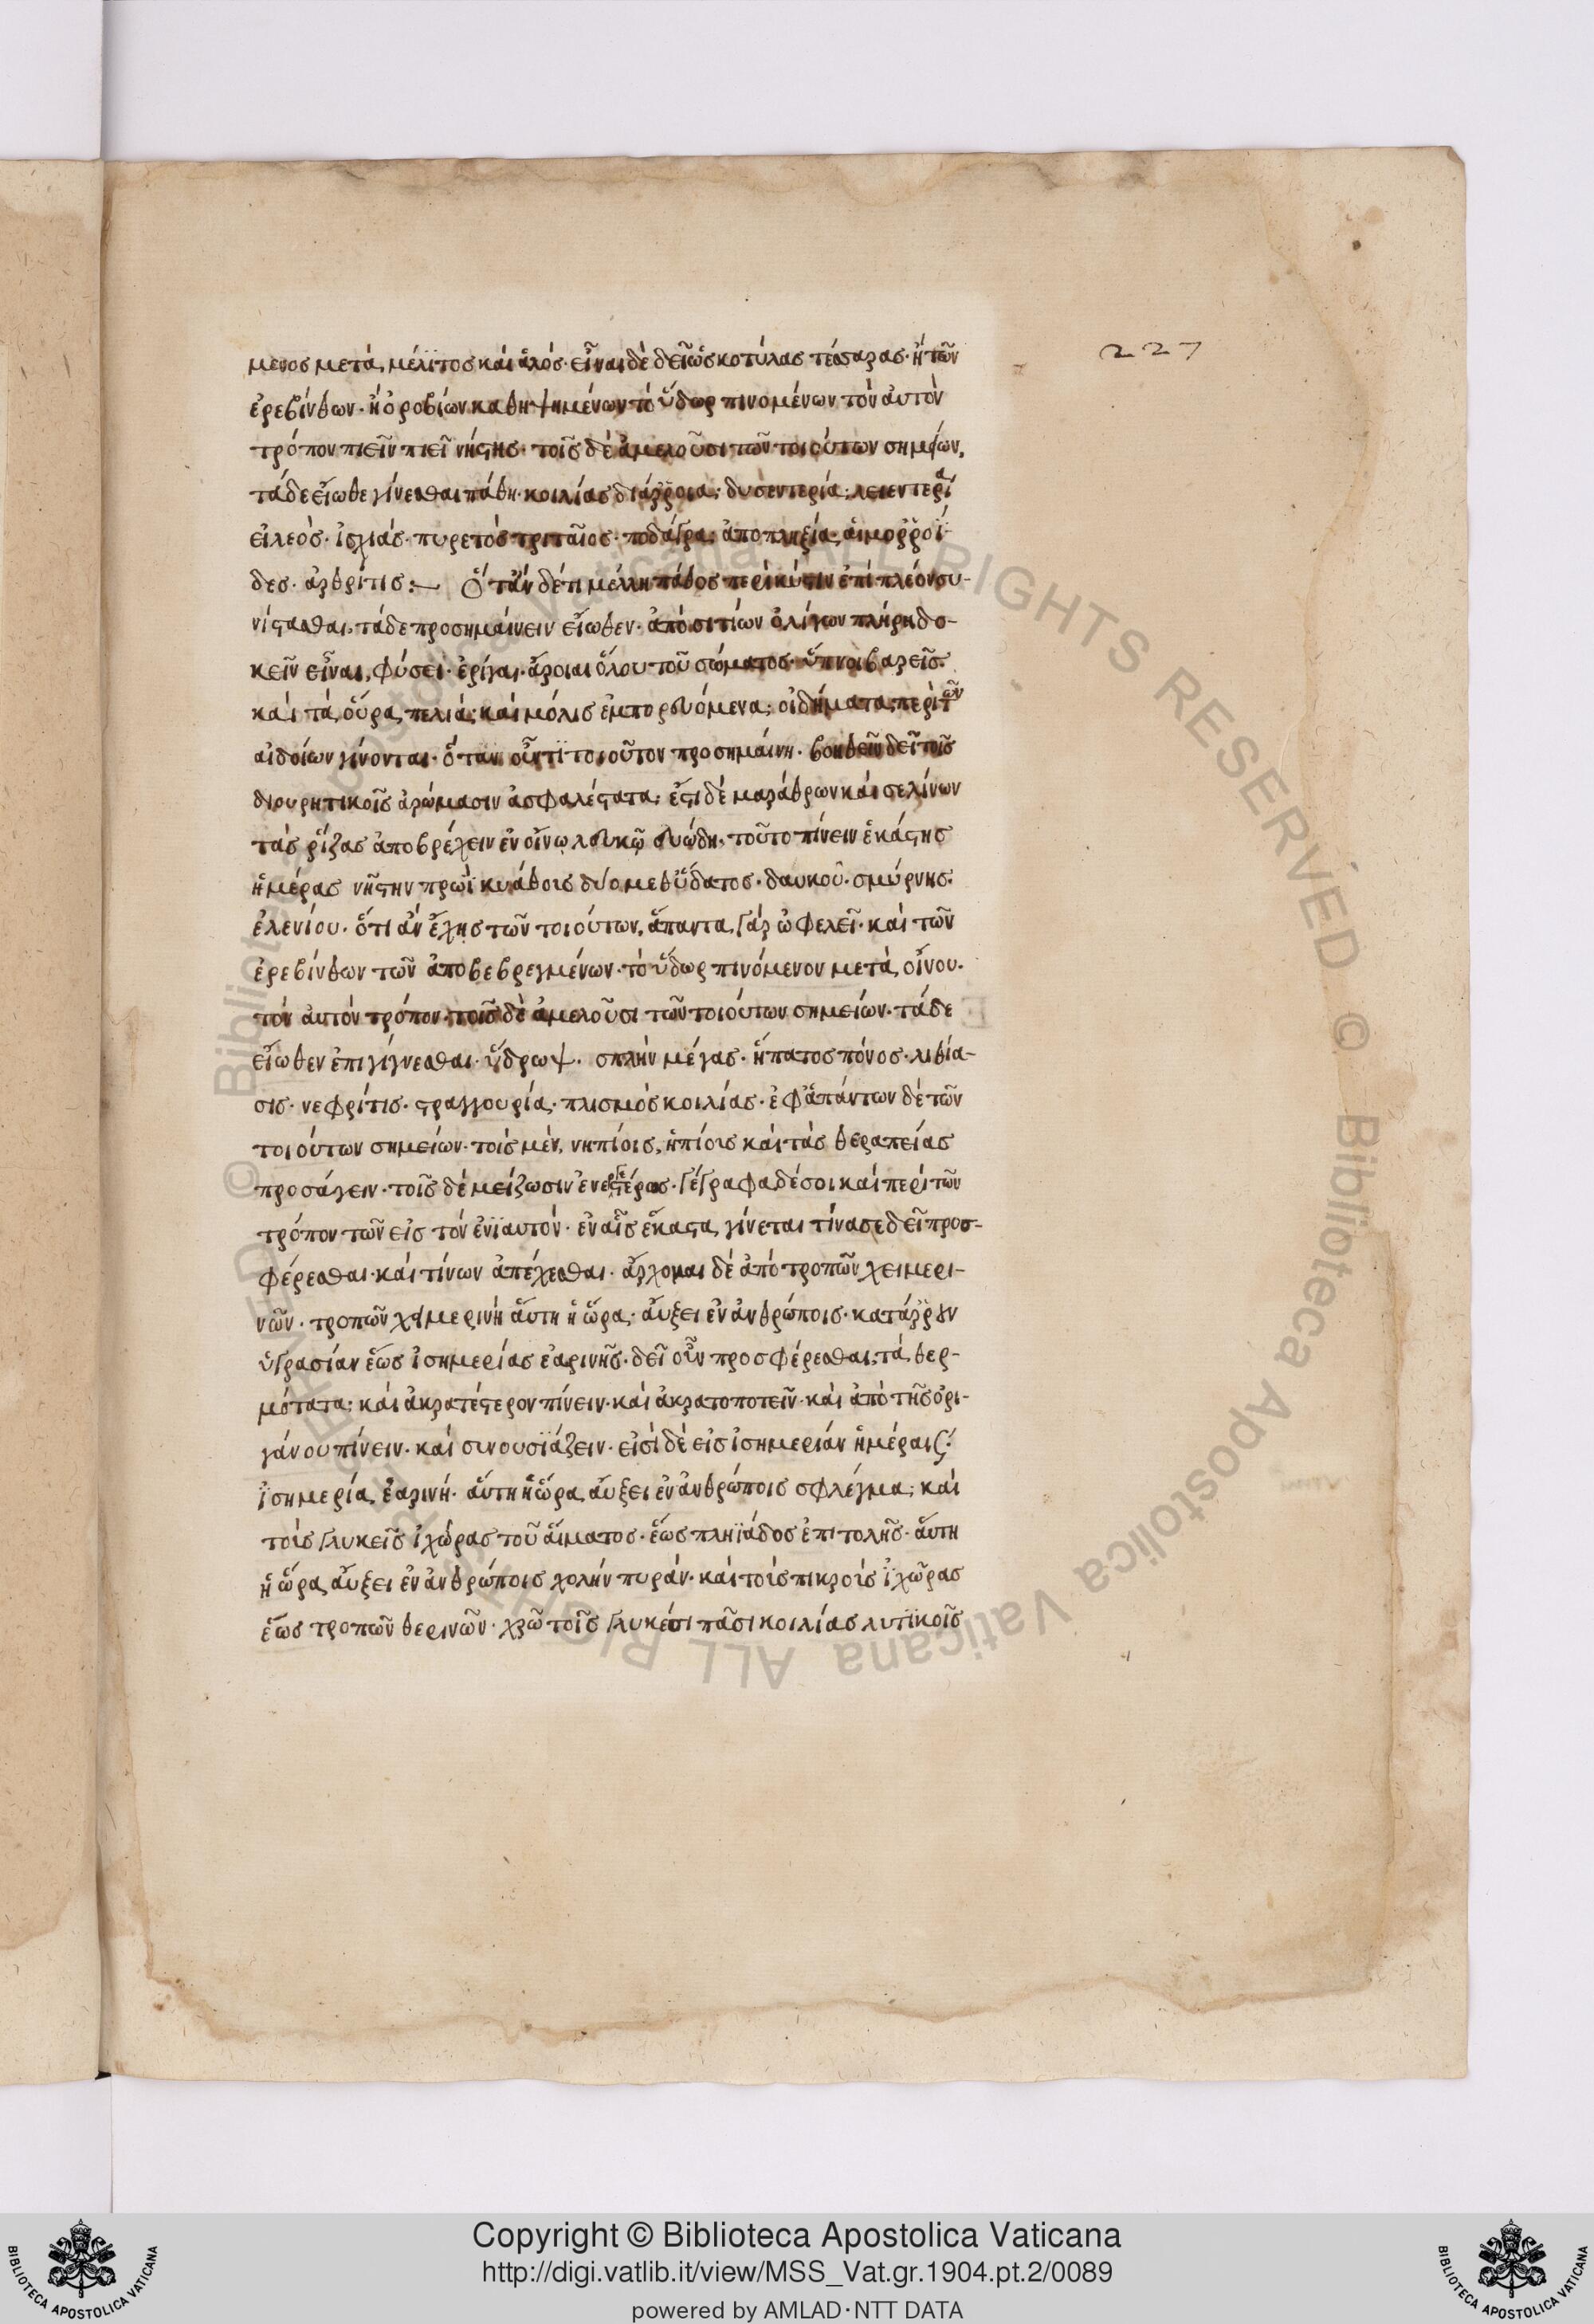 227
μενος μετὰ μέλϊτος καὶ ἁλός· εἶναι δὲ δεῖ ὡς κοτύλας τέσσαρας· ἢ τῶν
ἐρεβίνθων· ἢ ὀροβίων καθηψημένων τὸ ὕδωρ πινομένων τὸν ἀυτὸν
τρόπον πιεῖν πιεῖ νήστης· τοῖς δὲ ἀμελοῦσι τῶν τοιούτων σημείων,
τάδε εἴωθε γίνεσθαι πάθη· κοιλίας διάρροια· δυσεντερία· λειεντερία
εἰλεὸς· ἰσχιάς· πυρετὸς τριταῖος· ποδάγρα· ἀποπληξία· αἱμορροΐ
δες· ἀρθρίτις:— Ὅταν δέ τι μέλλη πάθος περὶ κύστιν ἐπὶ πλέον συ-
νίστασθαι, τάδε προσημαίνειν εἴωθεν· ἀπὸ σιτίων ὀλίγων πλήρη δο-
κεῖν εἶναι, φύσει· ἐρίγαι· ἄχροιαι ὅλου τοῦ σώματος· ὕπνοι βαρεῖς·
καὶ τὰ οὖρα πελιά· καὶ μόλις ἐμπορευόμενα· οἰδήματα περὶ τῶν
αἰδοίων γίνονται· ὅταν οὖν τϊ τοιοῦτον προσημαίνη· βοηθεῖν δεῖ τοῖς
διουρητικοῖς ἀρώμασιν ἀσφαλέστατα· ἔστι δὲ μαράθρων καὶ σελίνων
τὰς ῥίζας ἀποβρέχειν ἐν οἴνῳ λευκῷ εὐώδη, τοῦτο πίνειν ἑκάστης
ἡμέρας νῆστην πρωῒ κυάθοις δύο μεθ ὕδατος· δαυκοῦ· σμύρνης·
ἐλενίου· ὅτι ἂν ἔχης τῶν τοιούτων, ἅπαντα γὰρ ὠφελεῖ· καὶ τῶν
ἐρεβίνθων τῶν ἀποβεβρεγμένων· τὸ ὕδωρ πινόμενον μετὰ οἴνου·
τὸν ἀυτὸν τρόπον· τοῖς δὲ ἀμελοῦσι τῶν τοιούτων σημείων· τάδε
εἴωθεν ἐπιγίγνεσθαι· ὕδρωψ· σπλὴν μέγας· ἥπατος πόνος· λιθία-
σις· νεφρίτις· στραγγουρία· πλισμὸς κοιλίας· ἐφ ἁπάντων δὲ τῶν
τοιούτων σημείων· τοῖς μὲν, νηπίοις, ἠπίοις καὶ τὰς θεραπείας
προσάγειν· τοῖς δὲ μείζωσιν γέγραφα δέ σοι καὶ περὶ τῶν
τρόπον τῶν εἰς τὸν ἐνϊαυτόν· ἐν αἷς ἕκαστα γίνεται τίνα σε δεῖ προσ-
φέρεσθαι· καὶ τίνων ἀπέχεσθαι· ἄρχομαι δὲ ἀπὸ τροπῶν χειμερι-
νῶν· τροπῶν χειμερινὴ ἅυτη ἡ ὥρα· ἄυξει ἐν ἀνθρώποις· κατάρρουν
ὑγρασίαν ἕως ἰσημερίας ἐαρινῆς· δεῖ οὖν προσφέρεσθαι, τὰ θερ-
μότατα· καὶ ἀκρατέστερον πίνειν· καὶ ἀκρατοποτεῖν· καὶ ἀπὸ τῆς ὀρι-
γάνου πίνειν· καὶ συνουσϊάζειν· εἰσὶ δὲ εἰς ἰσημερίαν ἡμέραι
ἰσημερία ἐαρινή· ἅυτη ἡ ὥρα ἄυξει ἐν ἀνθρώποις σφλέγμα· καὶ
τοὶς γλυκεῖς ἰχώρας τοῦ αἵματος· ἕως πληϊάδος ἐπιτολῆς· ἅυτη
ἡ ὥρα ἄυξει ἐν ἀνθρώποις χολὴν πυράν· καὶ τοὶς πικροὶς ἰχῶρας
ἕως τροπῶν θερινῶν· χρῶ τοῖς γλυκέσι πᾶσι κοιλίας λυτϊκοῖς
© Biblioteca Apostolica Vaticana ALL RIGHTS RESERVED © Biblioteca Apostolica Vaticana ALL RIGHTS RESERVED
Copyright © Biblioteca Apostolica Vaticana
http://digi.vatlib.it/view/MSS_Vat.gr.1904.pt.2/0089
powered by AMLAD·NTT DATA
BIBLIOTECA APOSTOLICA VATICANA
BIBLIOTECA APOSTOLICA VATICANA